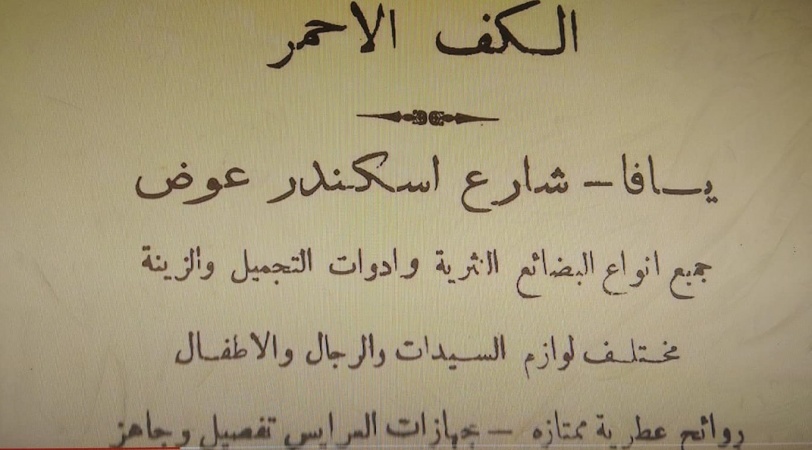 الكف الاحمر
يافا - شارع اسكندر عوض
جميع انواع البضائع النثرية وادوات التجميل والزينة
مختلف لوازم السيدات والرجال والاطفال
روائح عطرية ممتازه - جهازات العرايس تفصيل وجاهز